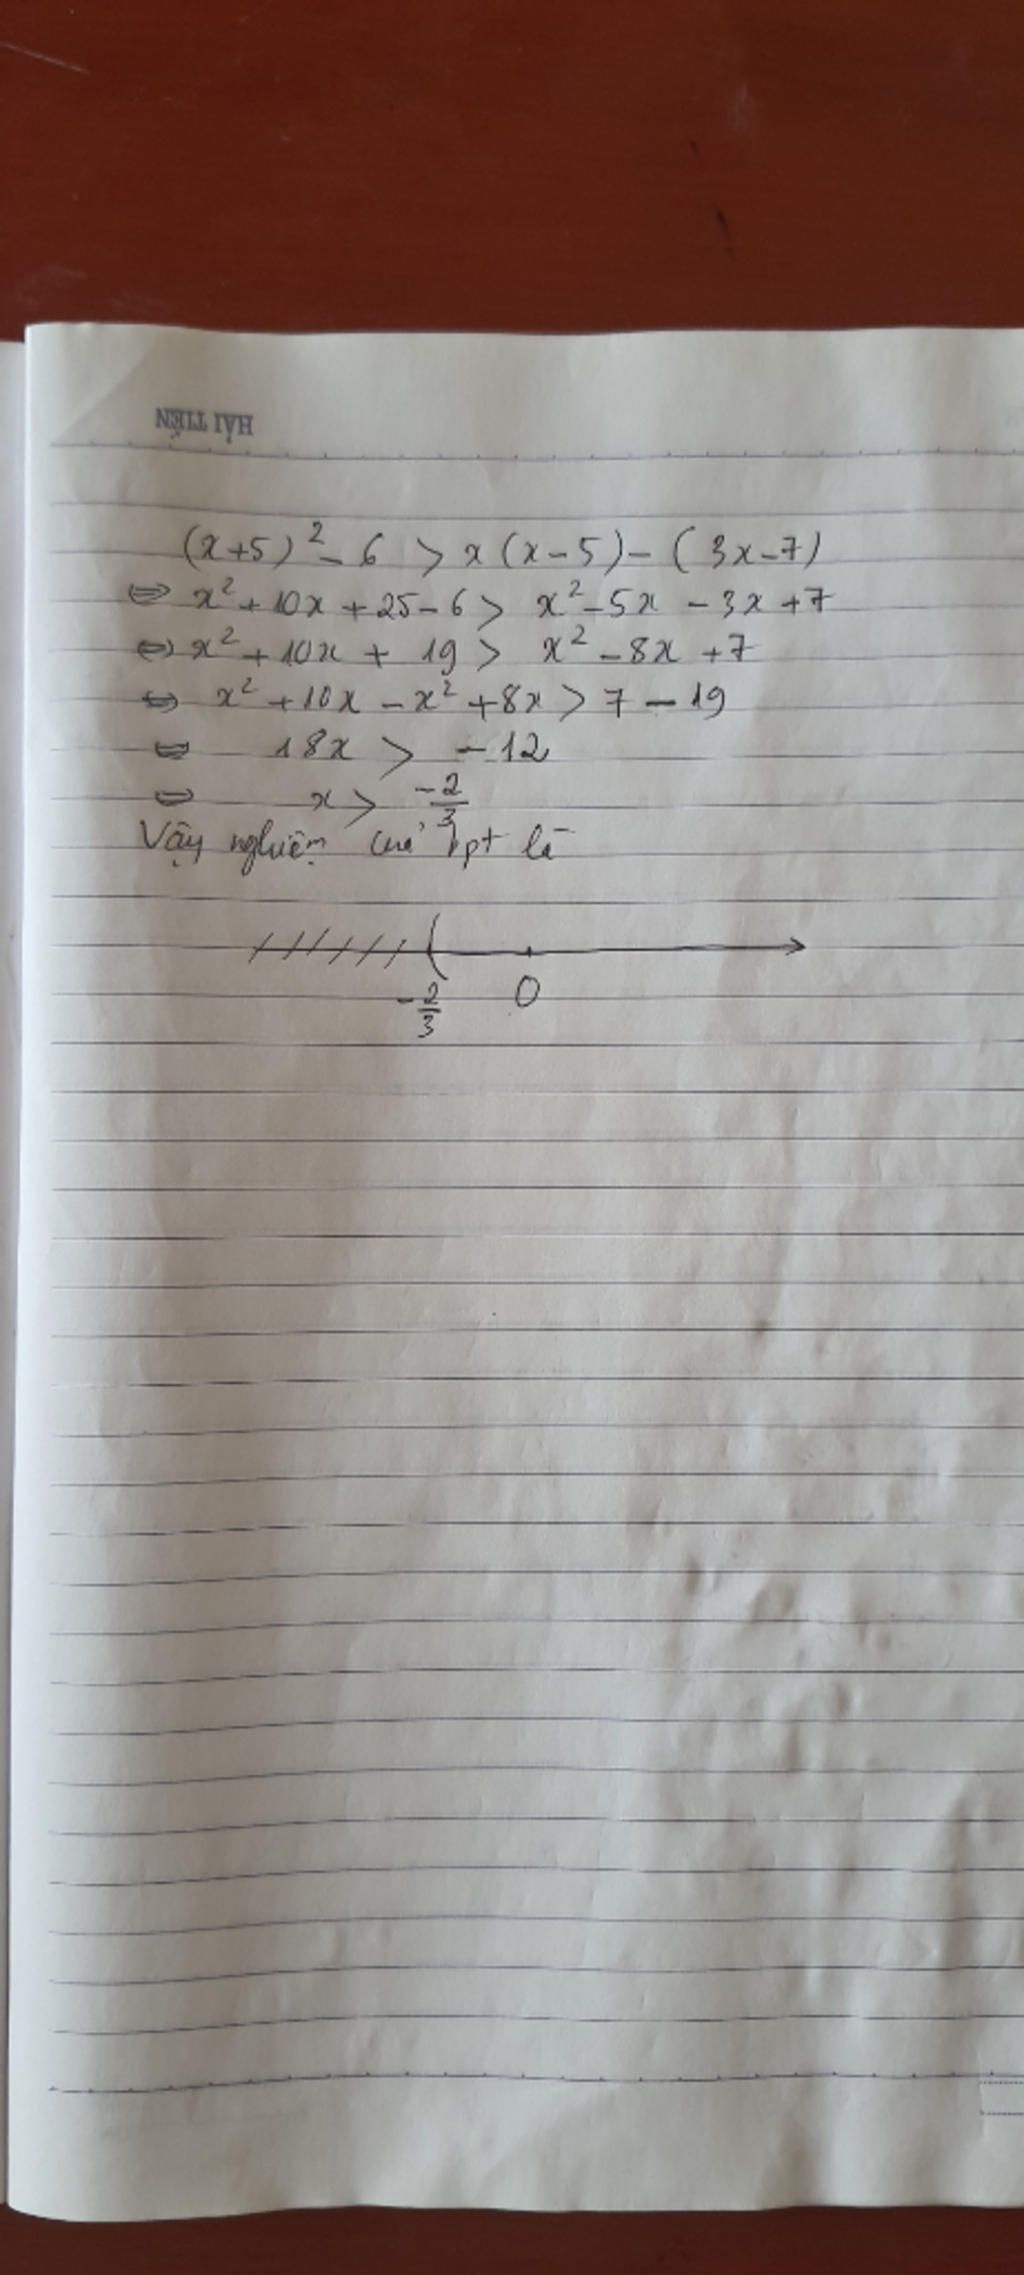 HẢI TIẾN
(x+5)² - 6 > x(x-5) - (3x-7)
⇔ x² + 10x + 25 - 6 > x² - 5x - 3x + 7
⇔ x² + 10x + 19 > x² - 8x + 7
⇔ x² + 10x - x² + 8x > 7 - 19
⇔ 18x > -12
⇔ x > -2/3
Vậy nghiệm của bpt là
-2/3 0